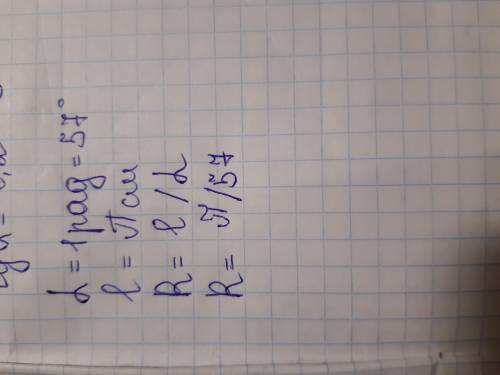 α = 1 рад = 57°
l = П см
R = l / α
R = П/57